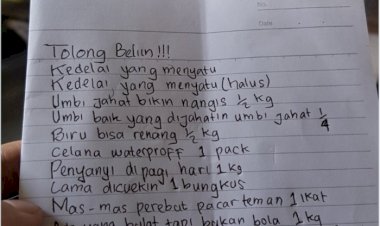 No.
Date
Tolong Beliin!!!
Kedelai yang menyatu
Kedelai yang menyatu (halus)
Umbi jahat bikin nangis ½ kg
Umbi baik yang dijahatin umbi jahat ¼
Biru bisa renang ½ kg
Celana waterproff 1 pack
Penyanyi di pagi hari 1 kg
Lama dicuekin 1 bungkus
Mas-mas perebut pacar teman 1 ikat
yang bulat tapi bukan bola 1 kg